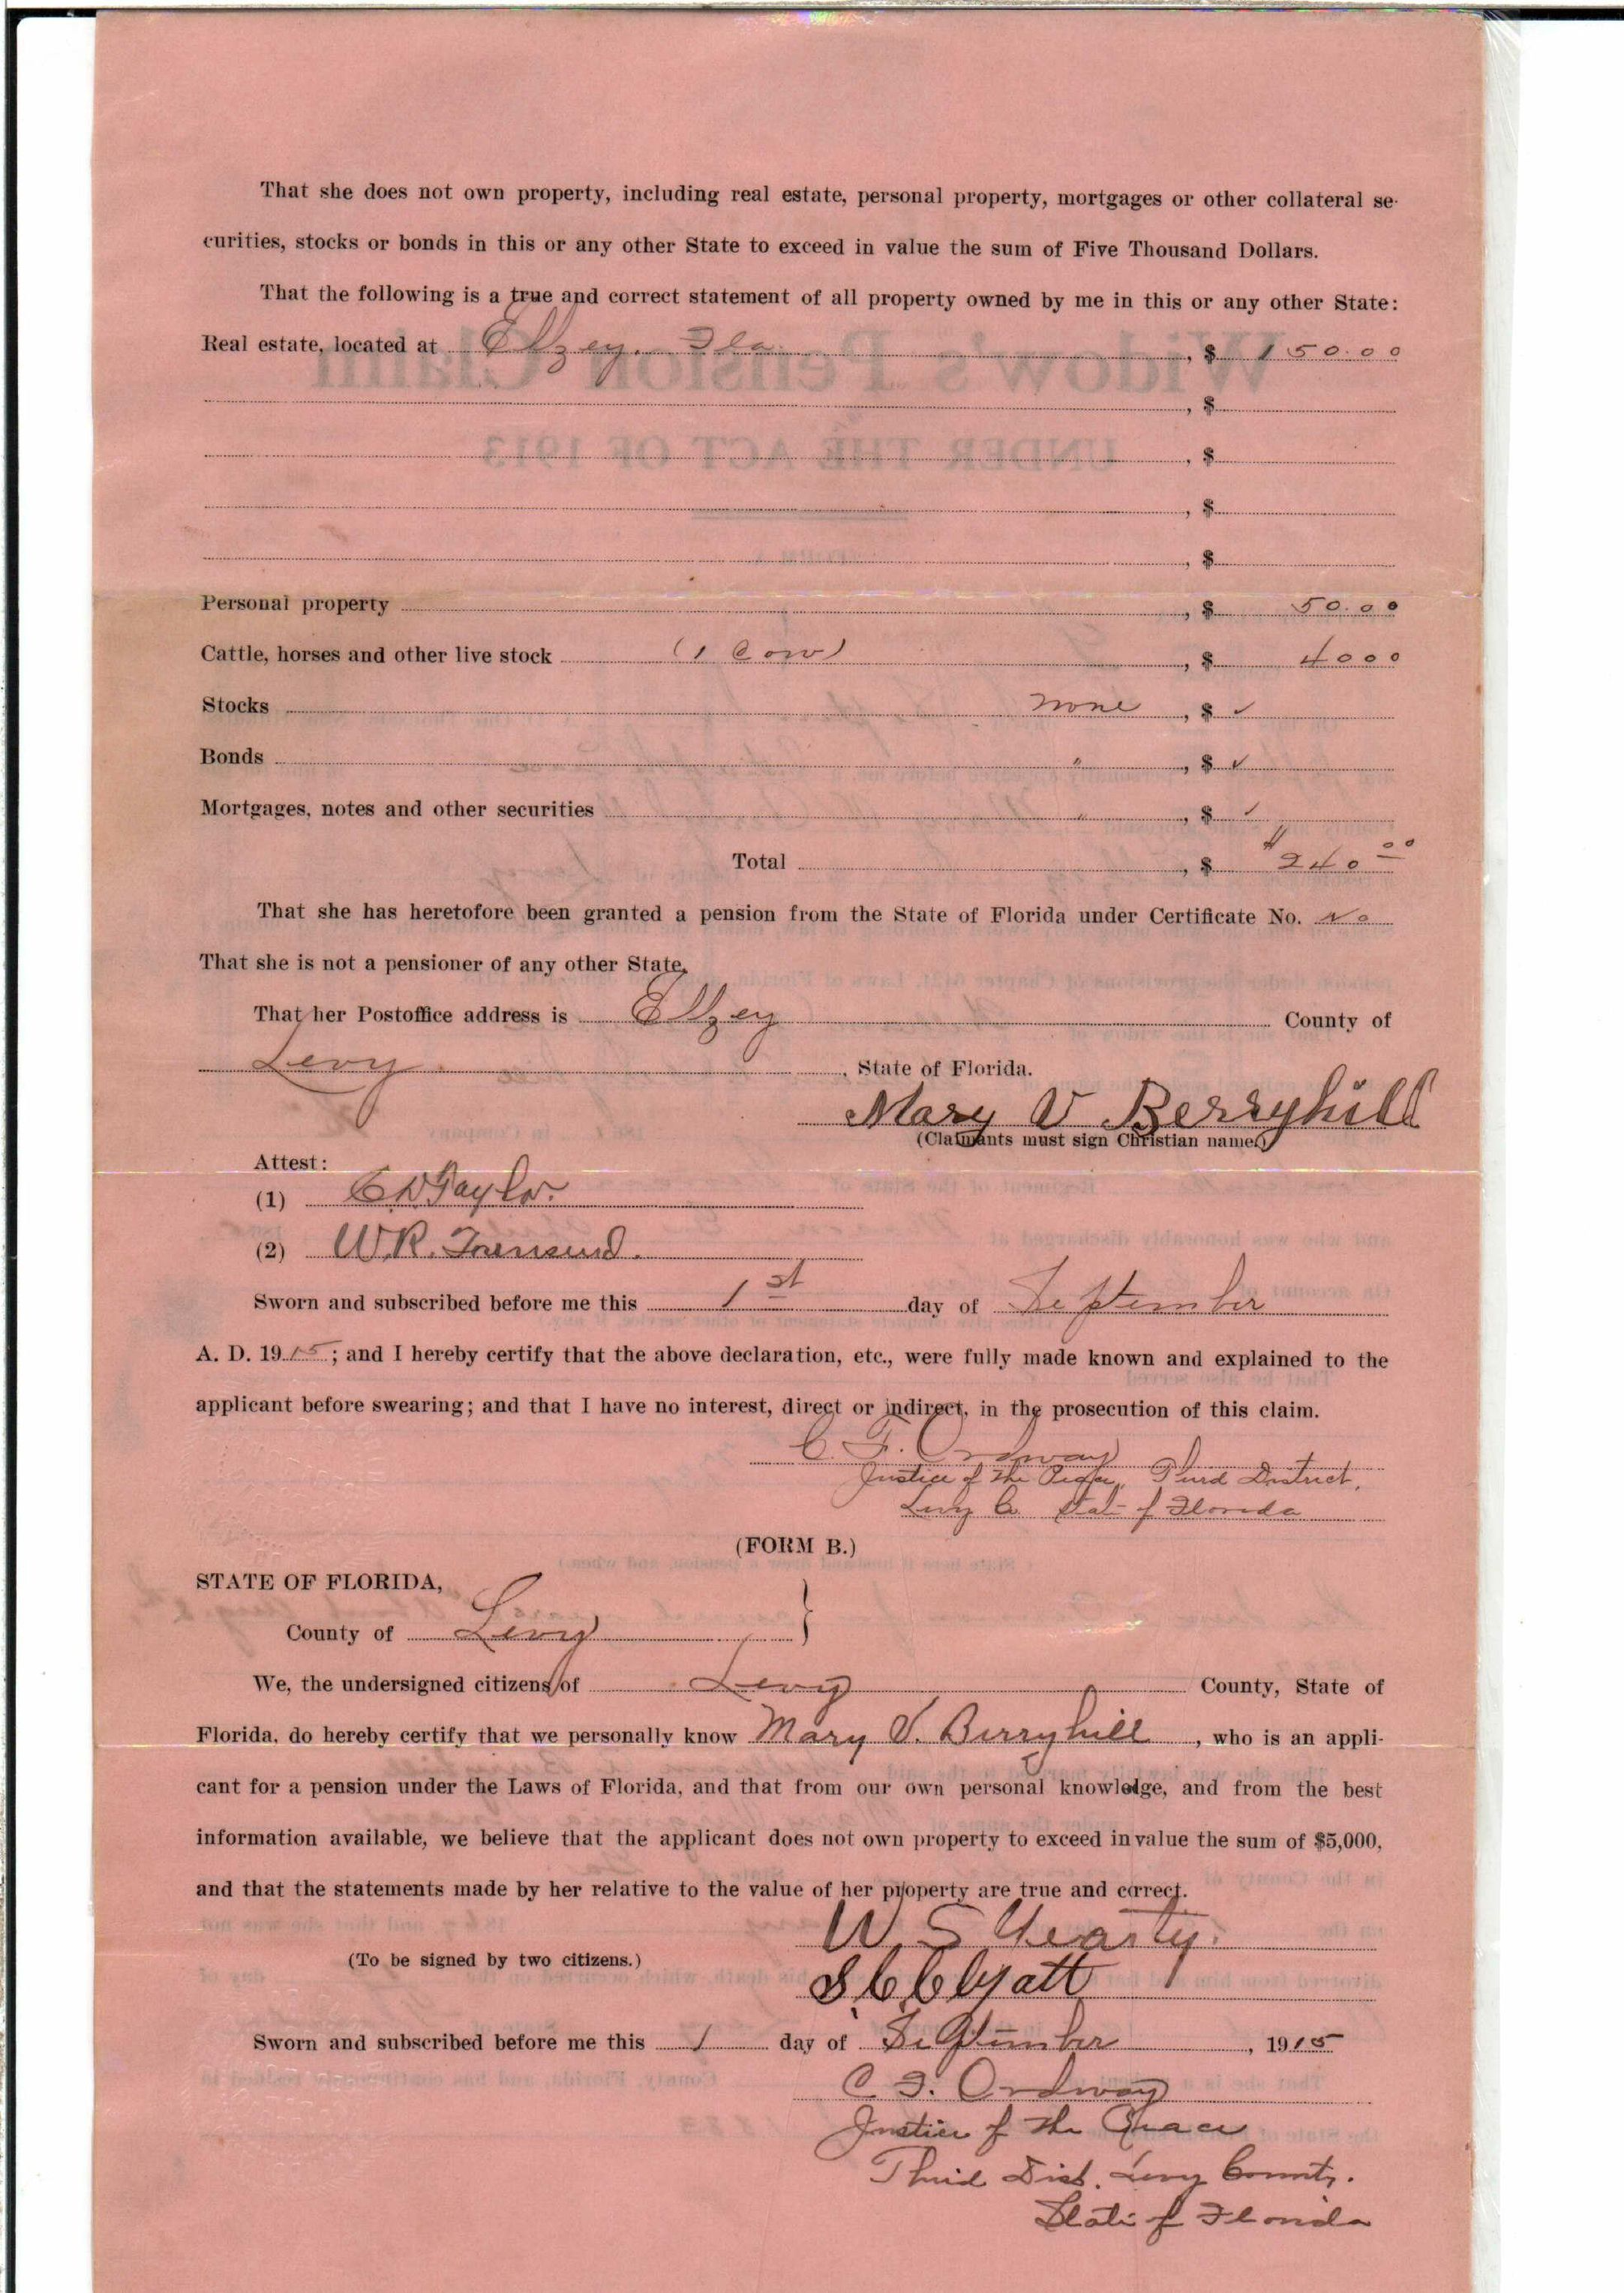 That she does not own property, including real estate, personal property, mortgages or other collateral se-
curities, stocks or bonds in this or any other State to exceed in value the sum of Five Thousand Dollars.
That the following is a true and correct statement of all property owned by me in this or any other State:
Real estate, located at Ellzey, Fla. , $ 150.00
, $
, $
, $
, $
Personal property , $ 50.00
Cattle, horses and other live stock (1 Cow) , $ 4000
Stocks none , $ ✓
Bonds " , $ ✓
Mortgages, notes and other securities " , $ ✓
Total , $ $240.00
That she has heretofore been granted a pension from the State of Florida under Certificate No. No
That she is not a pensioner of any other State.
That her Postoffice address is Ellzey County of
Levy , State of Florida.
Mary V Berryhill
(Claimants must sign Christian name.)
Attest:
(1) C W Taylor.
(2) W.R. Townsend.
Sworn and subscribed before me this 1st day of September
A. D. 1915; and I hereby certify that the above declaration, etc., were fully made known and explained to the
applicant before swearing; and that I have no interest, direct or indirect, in the prosecution of this claim.
C. F. Ordway
Justice of the Peace, Third District,
Levy Co. State of Florida
(FORM B.)
STATE OF FLORIDA,
County of Levy }
We, the undersigned citizens of Levy County, State of
Florida, do hereby certify that we personally know Mary V. Berryhill , who is an appli-
cant for a pension under the Laws of Florida, and that from our own personal knowledge, and from the best
information available, we believe that the applicant does not own property to exceed in value the sum of $5,000,
and that the statements made by her relative to the value of her property are true and correct.
W. S. Yearty.
(To be signed by two citizens.)
S. C. Clyatt
Sworn and subscribed before me this 1 day of September , 1915
C. F. Ordway
Justice of the Peace
Third Dist. Levy County.
State of Florida